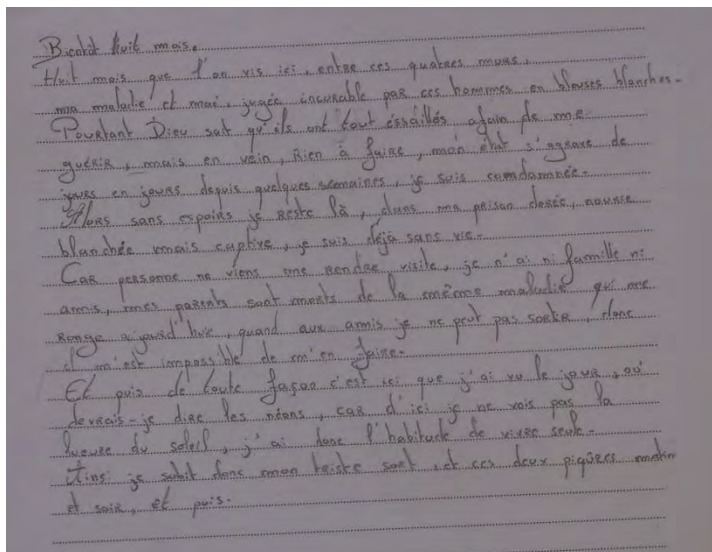 Bientôt huit mois.
Huit mois que l'on vis ici, entre ces quatres murs,
ma maladie et moi, jugée incurable par ces hommes en blouses blanches.
Pourtant Dieu sait qu'ils ont tout éssaillés afain de me
guérir, mais en vein, Rien à faire, mon état s'agrave de
jours en jours depuis quelques semaines, je suis comdamnée.
Alors sans espoirs je reste là, dans ma prison dorée, nourrie
blanchée mais captive, je suis déjà sans vie.
Car personne ne viens me rendre visite, je n'ai ni famille ni
amis, mes parents sont morts de la même maladie qui me
ronge aujourd'hui, quand aux amis je ne peut pas sortir, donc
il m'est impossible de m'en faire.
Et puis de toute façon c'est ici que j'ai vu le jour, où
devrais-je dire les néons, car d'ici je ne vois pas la
lueure du soleil, j'ai donc l'habitude de vivre seule.
Ainsi je subit donc mon triste sort, et ces deux piqûres matin
et soir, et puis.